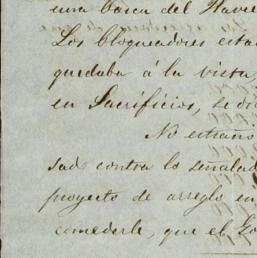 una barca del Havre
Los bloqueadores esta
quedaba á la vista,
en Sacrificios, se di
No estrañe
sado contra lo señalad
proyecto de arreglo en
comederle, que el Go